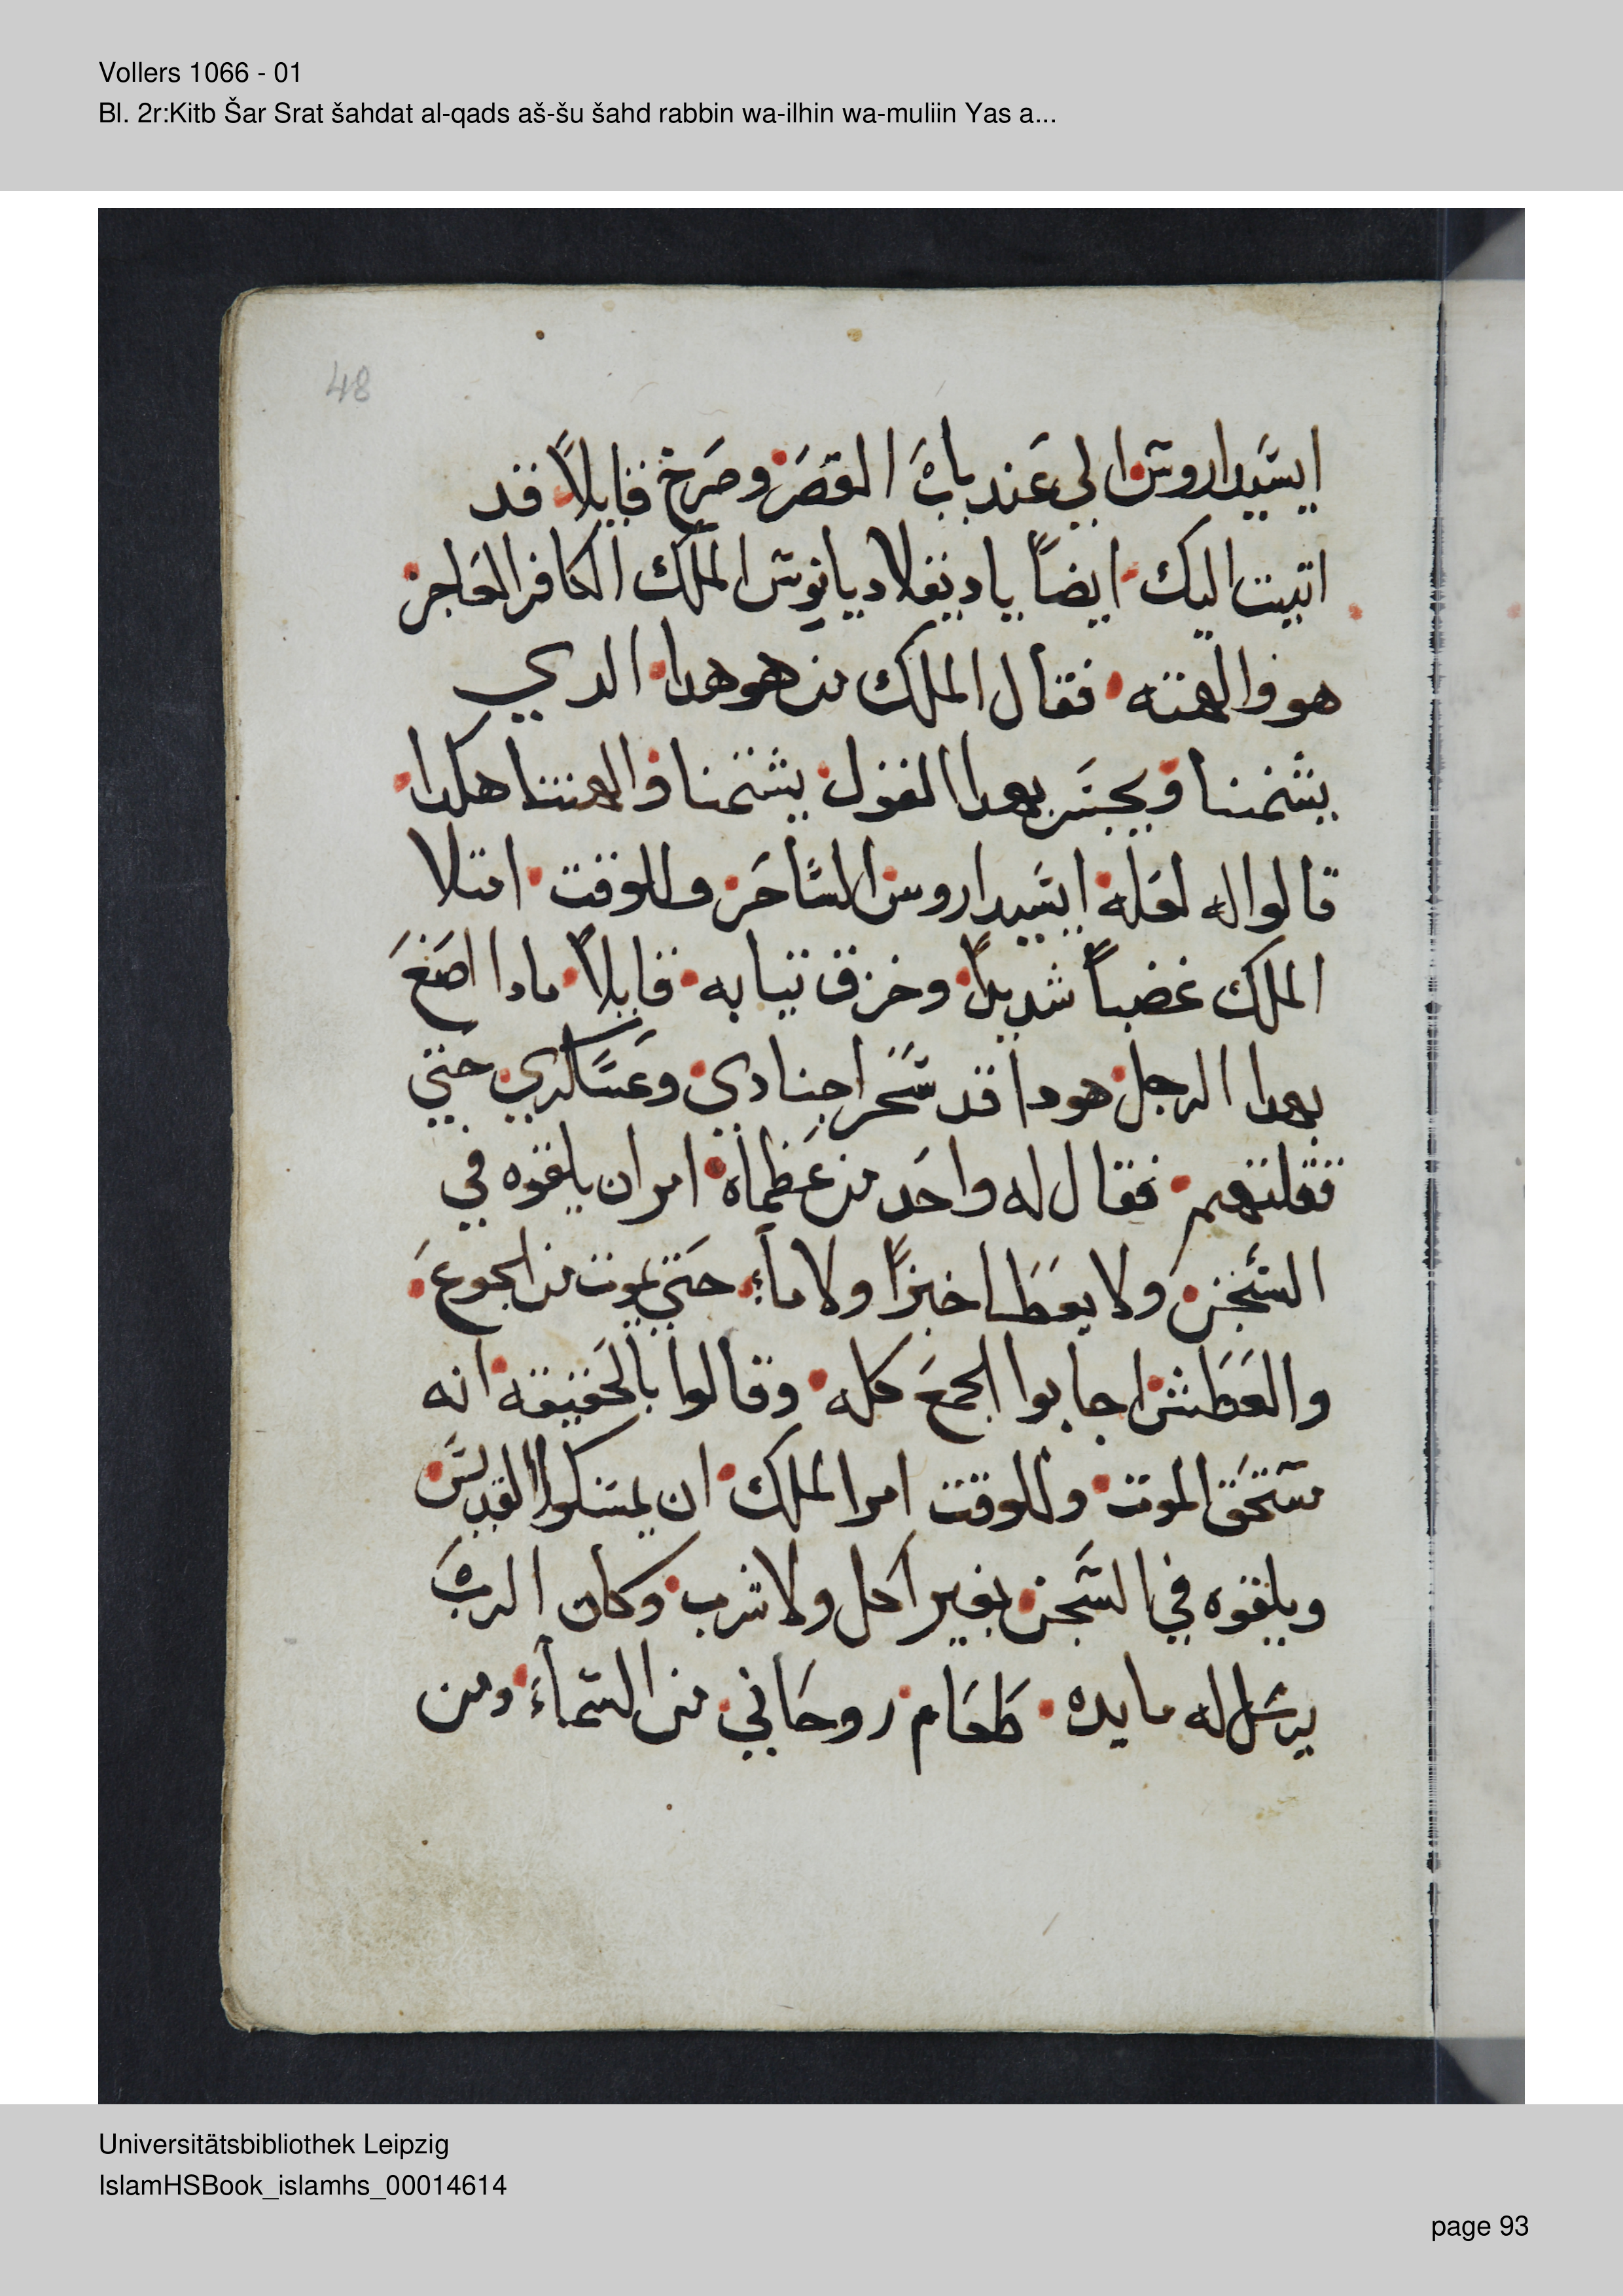 Vollers 1066 - 01
Bl. 2r:Kitb Šar Srat šahdat al-qads aš-šu šahd rabbin wa-ilhin wa-muliin Yas a...
48
ايسيداروس الي عند باب القصر وصرخ قايلاً قد
اتيت اليك ايضاً يا دقلاديانوس الملك الكافر الفاجر
هو والهته فقال الملك من هو هدا الدي
يشتمنا ويجسر بهدا القول يشتمنا والهتنا هكدا
قالوا له لعله ايسيداروس الساحر وللوقت امتلا
الملك غضباً شديداً وخزق تيابه قايلاً مادا اصنع
بهدا الرجل هودا قد سحر اجنادي وعساكري حتي
قتلتهم فقال له واحد من عظماه امر ان يلقوه في
السجن ولا يعطا خبزاً ولا ماءً حتي يموت من الجوع
والعطش اجابوا الجمع كله وقالوا بالحقيقه انه
مستحق الموت وللوقت امر الملك ان يمسكوا القديس
ويلقوه في السجن بغير اكل ولا شرب وكان الرب
يرسل له مايده طعام روحاني من السماء ومن
Universitätsbibliothek Leipzig
IslamHSBook_islamhs_00014614
page 93